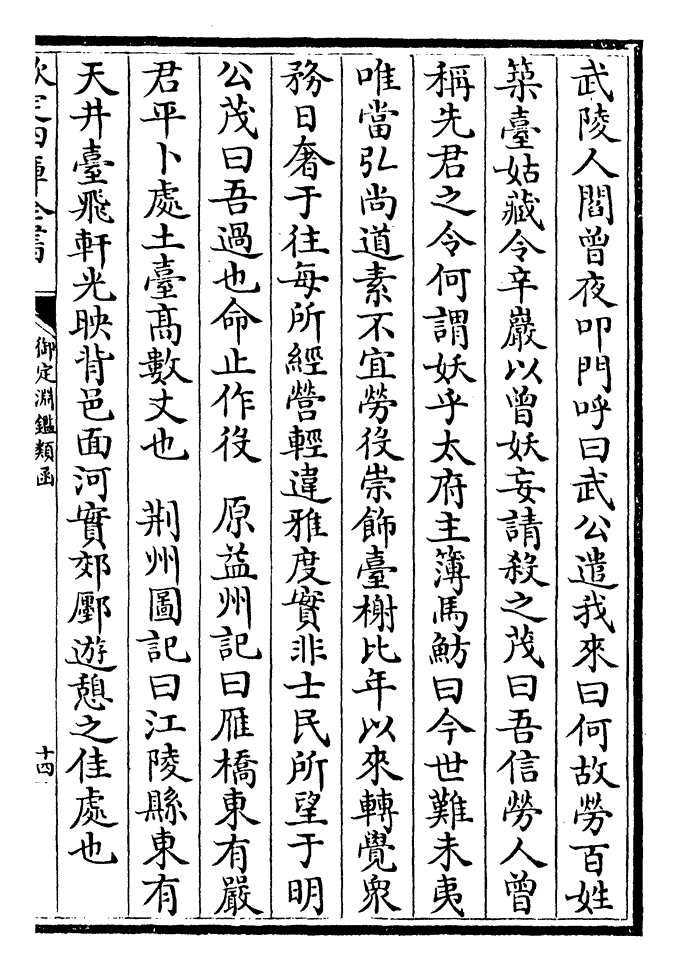 武陵人閻曾夜叩門呼曰武公遣我來曰何故勞百姓
築臺姑藏令辛巖以曾妖妄請殺之茂曰吾信勞人曾
稱先君之令何謂妖乎太府主簿馬魴曰今世難未夷
唯當弘尚道素不宜勞役崇飾臺榭比年以來轉覺衆
務日奢于往每所經營輕違雅度實非士民所望于明
公茂曰吾過也命止作役 原益州記曰雁橋東有嚴
君平卜處土臺高數丈也 荆州圖記曰江陵縣東有
天井臺飛軒光映背邑面河實郊鄽遊憩之佳處也
欽定四庫全書
御定淵鑑類函
十四